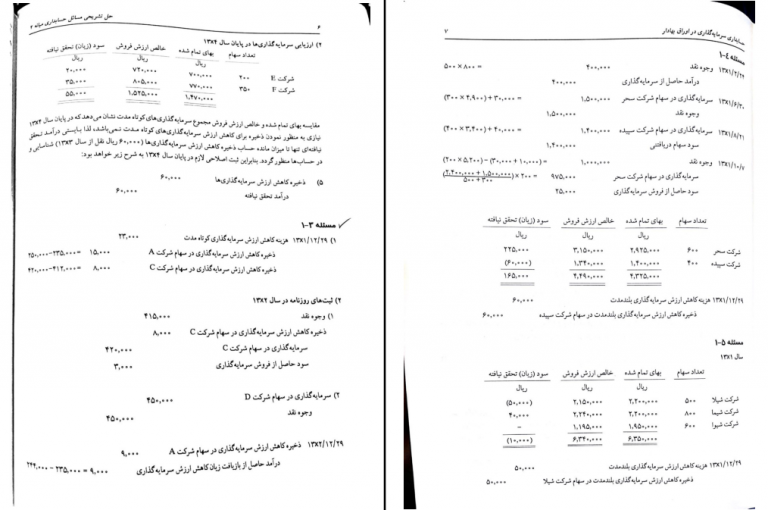 ۶
حل تشریحی مسائل حسابداری میانه ۲
۲) ارزیابی سرمایه‌گذاری‌ها در پایان سال ۱۳۸۴
تعداد سهام بهای تمام شده خالص ارزش فروش سود (زیان) تحقق نیافته
ریال ریال ریال
شرکت E ۲۰۰ ۷۰۰,۰۰۰ ۷۲۰,۰۰۰ ۲۰,۰۰۰
شرکت F ۳۵۰ ۷۷۰,۰۰۰ ۸۰۵,۰۰۰ ۳۵,۰۰۰
۱,۴۷۰,۰۰۰ ۱,۵۲۵,۰۰۰ ۵۵,۰۰۰
مقایسه بهای تمام شده و خالص ارزش فروش مجموع سرمایه‌گذاری‌های کوتاه مدت نشان می‌دهد که در پایان سال ۱۳۸۴
نیازی به منظور نمودن ذخیره برای کاهش ارزش سرمایه‌گذاری‌های کوتاه مدت نمی‌باشد، لذا بایستی درآمد تحقق
نیافته‌ای تنها تا میزان مانده حساب ذخیره کاهش ارزش سرمایه‌گذاری‌ها (۶۰,۰۰۰ ریال نقل از سال ۱۳۸۳) شناسایی و
در حساب‌ها منظور گردد. بنابراین ثبت اصلاحی لازم در پایان سال ۱۳۸۴ به شرح زیر خواهد بود:
۵) ذخیره کاهش ارزش سرمایه‌گذاری‌ها ۶۰,۰۰۰
درآمد تحقق نیافته ۶۰,۰۰۰
مسئله ۳-۱
۱) ۱۳۸۱/۱۲/۲۹ هزینه کاهش ارزش سرمایه‌گذاری کوتاه مدت ۲۳,۰۰۰
ذخیره کاهش ارزش سرمایه‌گذاری در سهام شرکت A ۱۵,۰۰۰ = ۲۵۰,۰۰۰-۲۳۵,۰۰۰
ذخیره کاهش ارزش سرمایه‌گذاری در سهام شرکت C ۸,۰۰۰ = ۴۲۰,۰۰۰-۴۱۲,۰۰۰
۲) ثبت‌های روزنامه در سال ۱۳۸۲
۱) وجوه نقد ۴۱۵,۰۰۰
ذخیره کاهش ارزش سرمایه‌گذاری در سهام شرکت C ۸,۰۰۰
سرمایه‌گذاری در سهام شرکت C ۴۲۰,۰۰۰
سود حاصل از فروش سرمایه‌گذاری ۳,۰۰۰
۲) سرمایه‌گذاری در سهام شرکت D ۴۵۰,۰۰۰
وجوه نقد ۴۵۰,۰۰۰
۱۳۸۲/۱۲/۲۹ ذخیره کاهش ارزش سرمایه‌گذاری در سهام شرکت A ۹,۰۰۰
درآمد حاصل از بازیافت زیان کاهش ارزش سرمایه‌گذاری ۹,۰۰۰ = ۲۴۴,۰۰۰ - ۲۳۵,۰۰۰
حسابداری سرمایه‌گذاری در اوراق بهادار
۷
مسئله ۴-۱
وجوه نقد ۴۰۰,۰۰۰ = ۵۰۰ × ۸۰۰
درآمد حاصل از سرمایه‌گذاری ۴۰۰,۰۰۰
سرمایه‌گذاری در سهام شرکت سحر ۱,۵۰۰,۰۰۰ = (۳۰۰ × ۴,۹۰۰) + ۳۰,۰۰۰
وجوه نقد ۱,۵۰۰,۰۰۰
۱۳۸۱/۸/۲۱ سرمایه‌گذاری در سهام شرکت سپیده ۱,۴۰۰,۰۰۰ = (۴۰۰ × ۳,۴۰۰) + ۴۰,۰۰۰
سود سهام دریافتنی ۱,۴۰۰,۰۰۰
۱۳۸۱/۱۰/۷ وجوه نقد ۱,۰۰۰,۰۰۰ = (۲۰۰ × ۵,۲۰۰) - (۳۰,۰۰۰ + ۱۰,۰۰۰)
سرمایه‌گذاری در سهام شرکت سحر ۹۷۵,۰۰۰ = ۲۰۰ × (۲,۴۰۰,۰۰۰ + ۱,۵۰۰,۰۰۰)/(۵۰۰ + ۳۰۰)
سود حاصل از فروش سرمایه‌گذاری ۲۵,۰۰۰
تعداد سهام بهای تمام شده خالص ارزش فروش سود (زیان) تحقق نیافته
ریال ریال ریال
شرکت سحر ۶۰۰ ۲,۹۲۵,۰۰۰ ۳,۱۵۰,۰۰۰ ۲۲۵,۰۰۰
شرکت سپیده ۴۰۰ ۱,۴۰۰,۰۰۰ ۱,۳۴۰,۰۰۰ (۶۰,۰۰۰)
۴,۳۲۵,۰۰۰ ۴,۴۹۰,۰۰۰ ۱۶۵,۰۰۰
۱۳۸۱/۱۲/۲۹ هزینه کاهش ارزش سرمایه‌گذاری بلندمدت ۶۰,۰۰۰
ذخیره کاهش ارزش سرمایه‌گذاری بلندمدت در سهام شرکت سپیده ۶۰,۰۰۰
مسئله ۵-۱
سال ۱۳۸۱
تعداد سهام بهای تمام شده خالص ارزش فروش سود (زیان) تحقق نیافته
ریال ریال ریال
شرکت شیلا ۵۰۰ ۲,۲۰۰,۰۰۰ ۲,۱۵۰,۰۰۰ (۵۰,۰۰۰)
شرکت شیما ۸۰۰ ۲,۲۰۰,۰۰۰ ۲,۲۴۰,۰۰۰ ۴۰,۰۰۰
شرکت شیوا ۶۰۰ ۱,۹۵۰,۰۰۰ –
۶,۳۵۰,۰۰۰ ۶,۳۴۰,۰۰۰ (۱۰,۰۰۰)
۱۳۸۱/۱۲/۲۹ هزینه کاهش ارزش سرمایه‌گذاری بلندمدت ۵۰,۰۰۰
ذخیره کاهش ارزش سرمایه‌گذاری بلندمدت در سهام شرکت شیلا ۵۰,۰۰۰